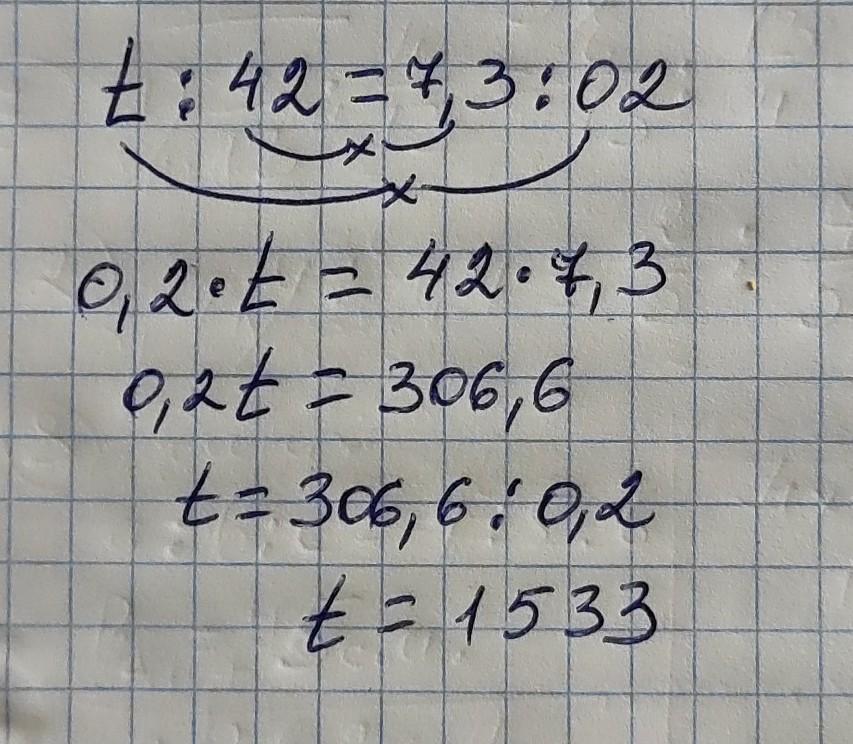 t : 42 = 7,3 : 02
0,2 · t = 42 · 7,3
0,2t = 306,6
t = 306,6 : 0,2
t = 1533